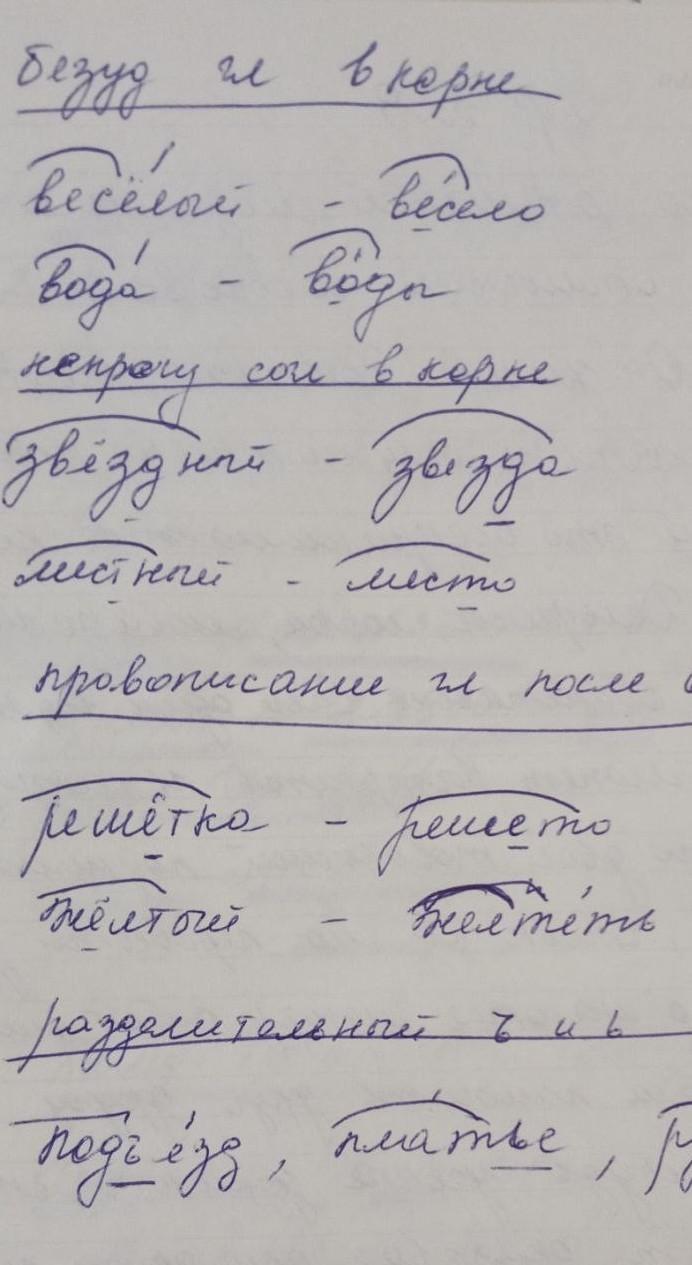 безуд гл в корне
весёлый - весело
вода - воды
непроизн согл в корне
звёздный - звезда
местный - место
провописание гл после
решётка - решето
жёлтый - желтеть
разделительный ъ и ь
подъезд, платье,